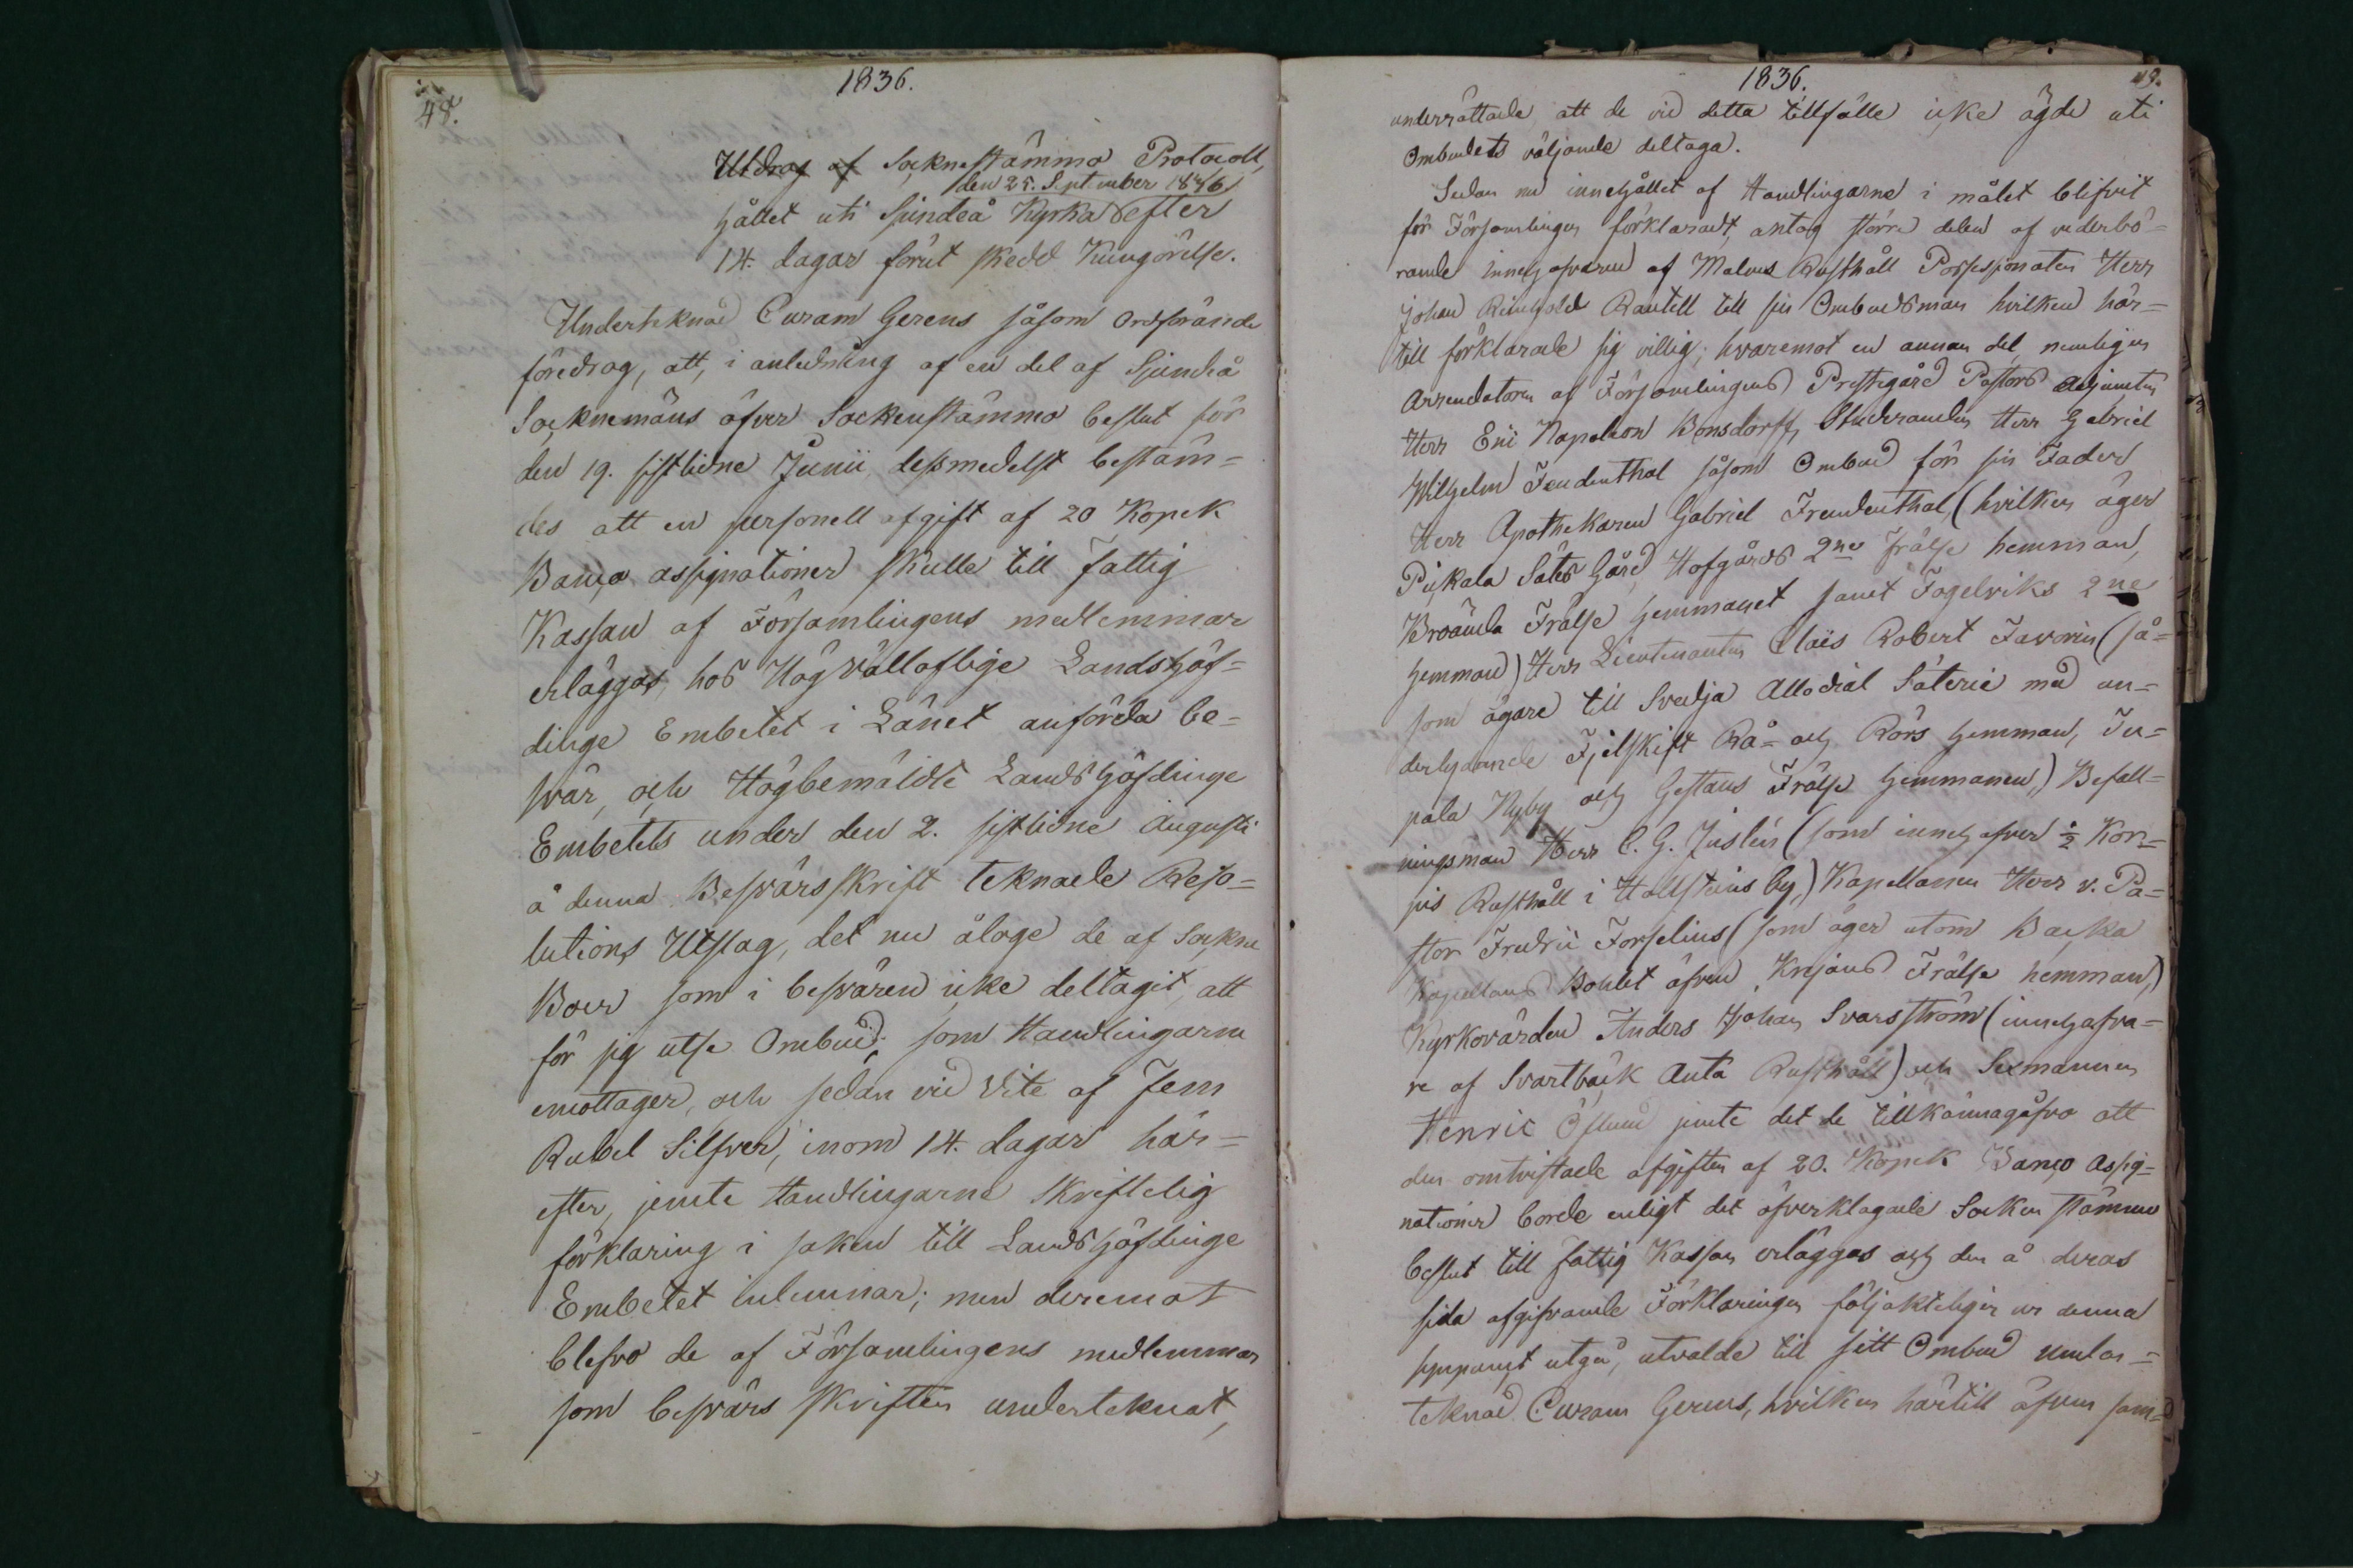 1836.
48.
Utdrag af Sockne stämmo Protocoll,
den 25. September 1836
hållet uti Sjundeå Kyrka efter
14. dagar förut skedd Kungörelse.
Undertecknad Curam Gerens såsom Ordförande
föredrog, att, i anledning af en del af Sjundeå
Socknemäns öfver Sockenstämmo beslut för
den 19. sistlidne Junii, dessmedelst bestäm=
des att en personell afgift af 20 Kopek
Banco assignationer skulle till Fattig
Kassan af Församlingens medlemmar
erläggas, hos Högvälloflige Landshöf=
dinge Embetet i Länet anförda be=
svär, och Högbemäldte Landshöfdinge
Embetets under den 2. sistlidne Augusti
å denna Besvärsskrift teknade Reso=
lutions Utslag, det nu ålåge de af Sockne
Boer som i besvären icke deltagit, att
för sig utse Ombud, som Handlingarne
emottager, och sedan vid Vite af Fem
Rubel Silfver, inom 14. dagar här=
efter, jemte Handlingarne skriftelig
förklaring i saken till Landshöfdinge
Embetet inlemnar; men deremot
blefvo de af Församlingens medlemmar
som besvärs skriften underteknat,
1836.
49.
underrättade att de vid detta tillfälle icke ägde uti
Ombudets väljande deltaga.
Sedan nu innehållet af Handlingarne i målet blifvit
för Församlingen förklaradt, antog större delen af vederbö=
rande innehafvaren af Malms Rusthåll Possessionaten Herr
Johan Reinhold Rantell till sin Ombudsman hvilken här=
till förklarade sig villig; hvaremot en annan del, nemligen
Arrendatoren af Församlingens Prestegård Pastors Adjuncten
Herr Eric Napoleon Bonsdorff, Studeranden Herr Gabriel
Wilhelm Freudenthal såsom Ombud för sin Fader
Herr Apothekaren Gabriel Freudenthal, (hvilken äger
Pickala Säters Gård, Hofgårds 2ne Frälse hemman,
Broända Frälse hemmanet samt Fogelviks 2ne
hemman) Herr Lieutenanten Claës Robert Favorin (så=
som ägare till Svedja Allodial Säterie med un=
derlydande Fjälskift Rå= och Rörs hemman, Ju=
pala Nyby och Gestans Frälse hemmanen,) Befall=
ningsman Herr C. G. Juslén (som innehafver ½ Kor=
pis Rusthåll i Hollsteins by,) Kapellanen Herr v. Pa=
stor Fredric Forselius (som äger utom Backa
Kapellans Bohlet äfven Krejans Frälse hemman,)
Kyrkovärden Anders Johan Svarsström (innehafva=
re af Svartbäck Anta Rusthåll) och Sexmannen
Henric Öflund jemte det de tillkännagåfvo att
den omtvistade afgiften af 20. Kopek Banco Assig=
nationer borde enligt det öfverklagade Socken stämmo
beslut till fattig Kassan erläggas och den å deras
sida afgifvande Förklaringen följakteligen ur denna
synpunct utgå, utvalde till sitt Ombud under=
teknad Curam Gerens, hvilken härtill äfven sam=